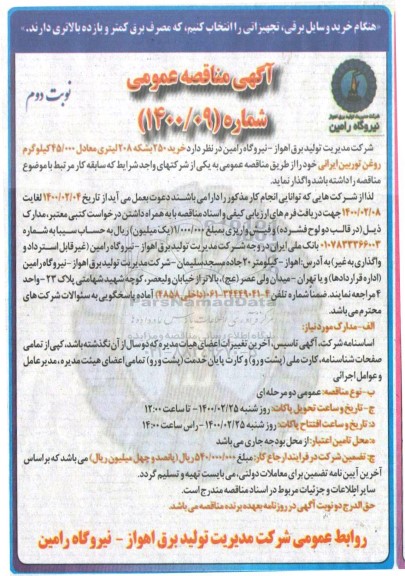 «هنگام خرید وسایل برقی، تجهیزاتی را انتخاب کنیم، که مصرف برق کمتر و بازده بالاتری دارند.»
آگهی مناقصه عمومی
شماره (۱۴۰۰/۰۹)
نوبت دوم
شرکت مدیریت تولید برق اهواز
نیروگاه رامین
شرکت مدیریت تولید برق اهواز - نیروگاه رامین در نظر دارد خرید ۲۵۰ بشکه ۲۰۸ لیتری معادل ۴۵/۰۰۰ کیلوگرم
روغن توربین ایرانی خود را از طریق مناقصه عمومی به یکی از شرکتهای واجد شرایط که سابقه کار مرتبط با موضوع
مناقصه را داشته باشد واگذار نماید.
لذا از شرکت هایی که توانایی انجام کار مذکور را دارا می باشند دعوت بعمل می آید از تاریخ ۱۴۰۰/۰۲/۰۴ لغایت
۱۴۰۰/۰۲/۰۸ جهت دریافت فرم های ارزیابی کیفی و اسناد مناقصه با به همراه داشتن درخواست کتبی معتبر، مدارک
ذیل (در قالب دو لوح فشرده) و فیش واریزی بمبلغ ۱/۰۰۰/۰۰۰ (یک میلیون) ریال به حساب سیبا به شماره
۰۱۰۷۸۳۳۳۶۶۰۰۳ بانک ملی ایران در وجه شرکت مدیریت تولید برق اهواز - نیروگاه رامین (غیر قابل استرداد و
واگذاری به غیر) به آدرس: اهواز - کیلومتر ۲۰ جاده مسجد سلیمان - شرکت مدیریت تولید برق اهواز - نیروگاه رامین
(اداره قراردادها) و یا تهران - میدان ولی عصر (عج)، بالاتر از خیابان ولیعصر، کوچه شهید شهامتی پلاک ۲۳ - واحد
۴ مراجعه نمایند. ضمنا شماره تلفن ۴-۳۴۴۴۹۰۴۱-۰۶۱ (داخلی ۲۸۵۸) آماده پاسخگویی به سئوالات شرکت های
محترم می باشد.
الف - مدارک مورد نیاز:
اساسنامه شرکت، آگهی تاسیس، آخرین تغییرات اعضای هیات مدیره که دو سال از آن نگذشته باشد، کپی از تمامی
صفحات شناسنامه، کارت ملی (پشت و رو) و کارت پایان خدمت (پشت و رو) تمامی اعضای هیئت مدیره، مدیر عامل
و عوامل اجرائی
ب - نوع مناقصه: عمومی دو مرحله ای
ج - تاریخ و ساعت تحویل پاکات: روز شنبه ۱۴۰۰/۰۲/۲۵ - تا ساعت ۱۲:۰۰
د: تاریخ و ساعت افتتاح پاکات: روز شنبه ۱۴۰۰/۰۲/۲۵ - راس ساعت ۱۴:۰۰
ه: محل تامین اعتبار: از محل بودجه جاری می باشد
ح: تضمین شرکت در فرایند ارجاع کار: مبلغ ۵۴۰/۰۰۰/۰۰۰ ریال (پانصد و چهل میلیون ریال) می باشد که بر اساس
آخرین آیین نامه تضمین برای معاملات دولتی، می بایست تهیه و تسلیم گردد.
سایر اطلاعات و جزئیات مربوط در اسناد مناقصه مندرج است.
حق الدرج دو نوبت آگهی در روزنامه بعهده برنده مناقصه می باشد.
روابط عمومی شرکت مدیریت تولید برق اهواز - نیروگاه رامین